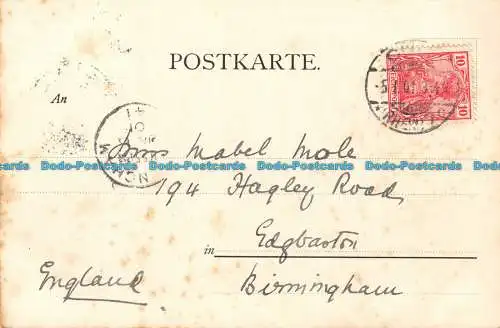 POSTKARTE.
An
10 10
Miss Mabel Mole
Dodo-Postcards Dodo-Postcards Dodo-Postcards Dodo-Postcards Dodo-Postcards
194 Hagley Road
in Edgbaston
England Birmingham